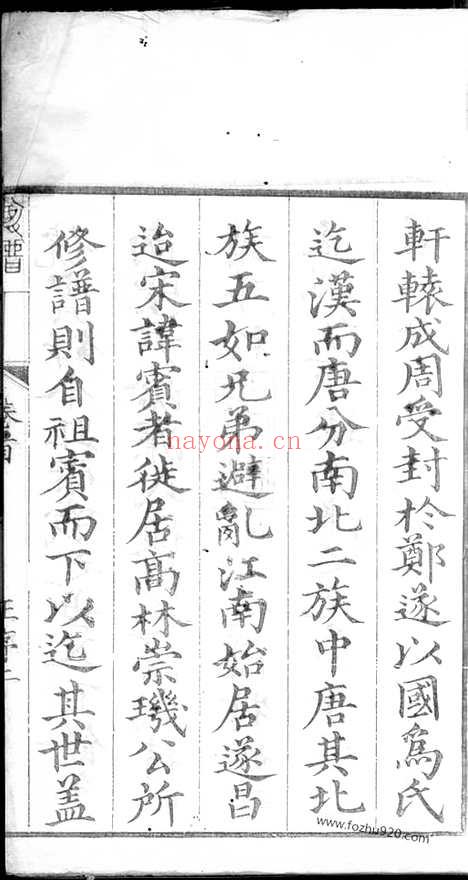 軒轅成周受封於鄭遂以國爲氏
迄漢而唐分南北二族中唐其北
族五如兄弟避亂江南始居遂昌
迨宋諱賓者徙居高林崇璣公所
修譜則自祖賓而下以迄其世盖
譜
卷首
hayona.cn
www.fozhu920.com